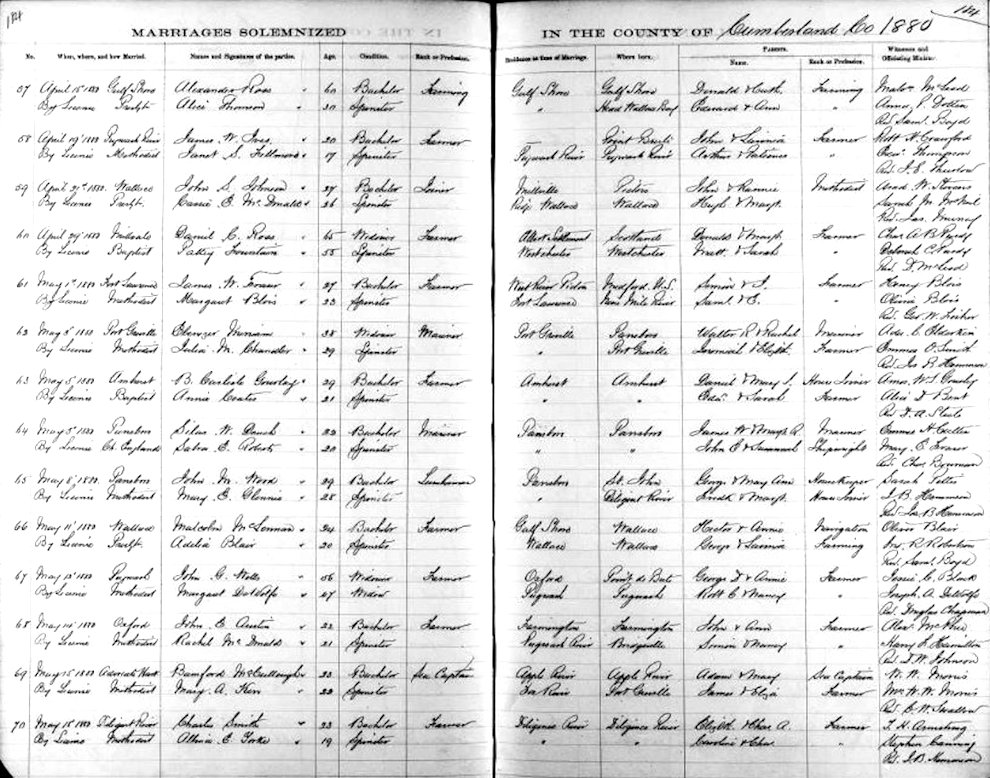 184
184
MARRIAGES SOLEMNIZED
IN THE COUNTY OF Cumberland Co 1880
No. When, where, and how Married. Names and Signatures of the parties. Age. Condition. Rank or Profession. Residence at time of Marriage. Where born. Parents. Name. Rank or Profession. Witnesses and Officiating Minister
57 April 15th 1880 Gulf Shore Alexander Ross 60 Bachelor Farming Gulf Shore Gulf Shore Donald & Cath. Farming McLeod
By Licence Presbyt. Alice Thomson 30 Spinster " Head Wallace Bay Edward & Ann Anna J.
Rev. Saml. Boyd
58 April 19th 1880 Pugwash River James W. Ives 20 Bachelor Farmer John & Lavinia Farmer Robt H. Crawford
By Licence Methodist Janet S. 17 Spinster Pugwash River Pugwash River Arthur & " Thompson
Rev. J. E. Thurlow
59 April 21st 1880 Wallace John S. Johnson 27 Bachelor Joiner Millville Pictou John & Methodist W. Stevens
By Licence Presbyt. Cassie E. McDonald 26 Spinster Wallace Wallace Hugh & Margt. Sarah M.
Rev. Jas. Murray
60 April 29th 1880 Daniel C. Ross 65 Widower Farmer Settlement Scotland Donald & Margt. Farmer Chas. A. B. Purdy
By Licence Baptist Fountain 53 Spinster Westchester Westchester Matt. & Sarah Deborah C. Purdy
Rev. D. McLeod
61 May 1st 1880 Fort Lawrence James W. Fraser 27 Bachelor Farmer West River Pictou Medford U.S. Simon & J. Farmer Henry Blois
By Licence Methodist Margaret Blois 23 Spinster Fort Lawrence Nine Mile River Saml. & E. " Olivia Blois
Rev. Geo. W. Fisher
62 May 3rd 1880 Port Greville Ebenezer Merriam 38 Widower Mariner Port Greville Parrsboro Walter R. & Rachel Mariner C. Elderkin
By Licence Methodist Julia M. Chandler 29 Spinster " Port Greville Jeremiah & Elizth. Farmer Emma O. Smith
Rev. Jos B. Hemmeon
63 May 5th 1880 Amherst B. Carlisle Gourley 29 Bachelor Farmer Amherst Amherst Daniel & Mary S. House Joiner Amos W. L. Gourley
By Licence Baptist Annie Coates 21 Spinster " " & Sarah Farmer Alice D. Bent
Rev. D. A. Steele
64 May 5th 1880 Parrsboro Silas W. 22 Bachelor Mariner Parrsboro Parrsboro James W. & Margt. R. Mariner
By Licence Ch. England E. Roberts 20 Spinster " " John C. & Shipwright Mary E. Fraser
Rev. Chas. Bowman
65 May 8th 1880 Parrsboro John M. Ward 29 Bachelor Lumberman Parrsboro St. John George & Mary Ann Housekeeper Sarah
By Licence Methodist Mary E. Glennie 28 Spinster " Diligent River & Margt. House Joiner J. B. Hemmeon
Rev. Jos B. Hemmeon
66 May 11th 1880 Wallace Malcolm McLennan 24 Bachelor Farmer Gulf Shore Wallace Hector & Annie Navigation Oliver Blair
By Licence Presbyt. Adelia Blair 20 Spinster Wallace Wallace George & Lavinia Farming Jno. R. Robertson
Rev. Saml. Boyd
67 May 13th 1880 Pugwash John G. Wells 56 Widower Farmer Oxford Point de Bute George D. & Annie Farmer Jessie C. Black
By Licence Methodist Margaret DeWolfe 47 Widow Pugwash Pugwash Robt C. & Nancy " Joseph A. DeWolfe
Rev. Douglas Chapman
68 May 14th 1880 Oxford John E. Austin 22 Bachelor Farmer Farmington Farmington John & Ann Farmer
By Licence Methodist Rachel McDonald 21 Spinster Pugwash River Simon & Nancy " Harry L. Hamilton
Rev. D. W. Johnson
69 May 15th 1880 Advocate Harbr Bamford McCullough 23 Bachelor Sea Captain Apple River Apple River Adam & Mary Sea Captain W. W. Morris
By Licence Methodist Mary A. Kerr 22 Spinster Fox River Port Greville James & Eliza Farmer Mrs W. W. Morris
Rev. C. W. Swallow
70 May 18th 1880 Diligent River Charles Smith 23 Bachelor Farmer Diligence River Diligence River & Chas A. Farmer T. H. Armstrong
By Licence Methodist E. Yorke 19 Spinster " " Caroline & Chas. " Stephen Canning
Rev. J. B. Hemmeon